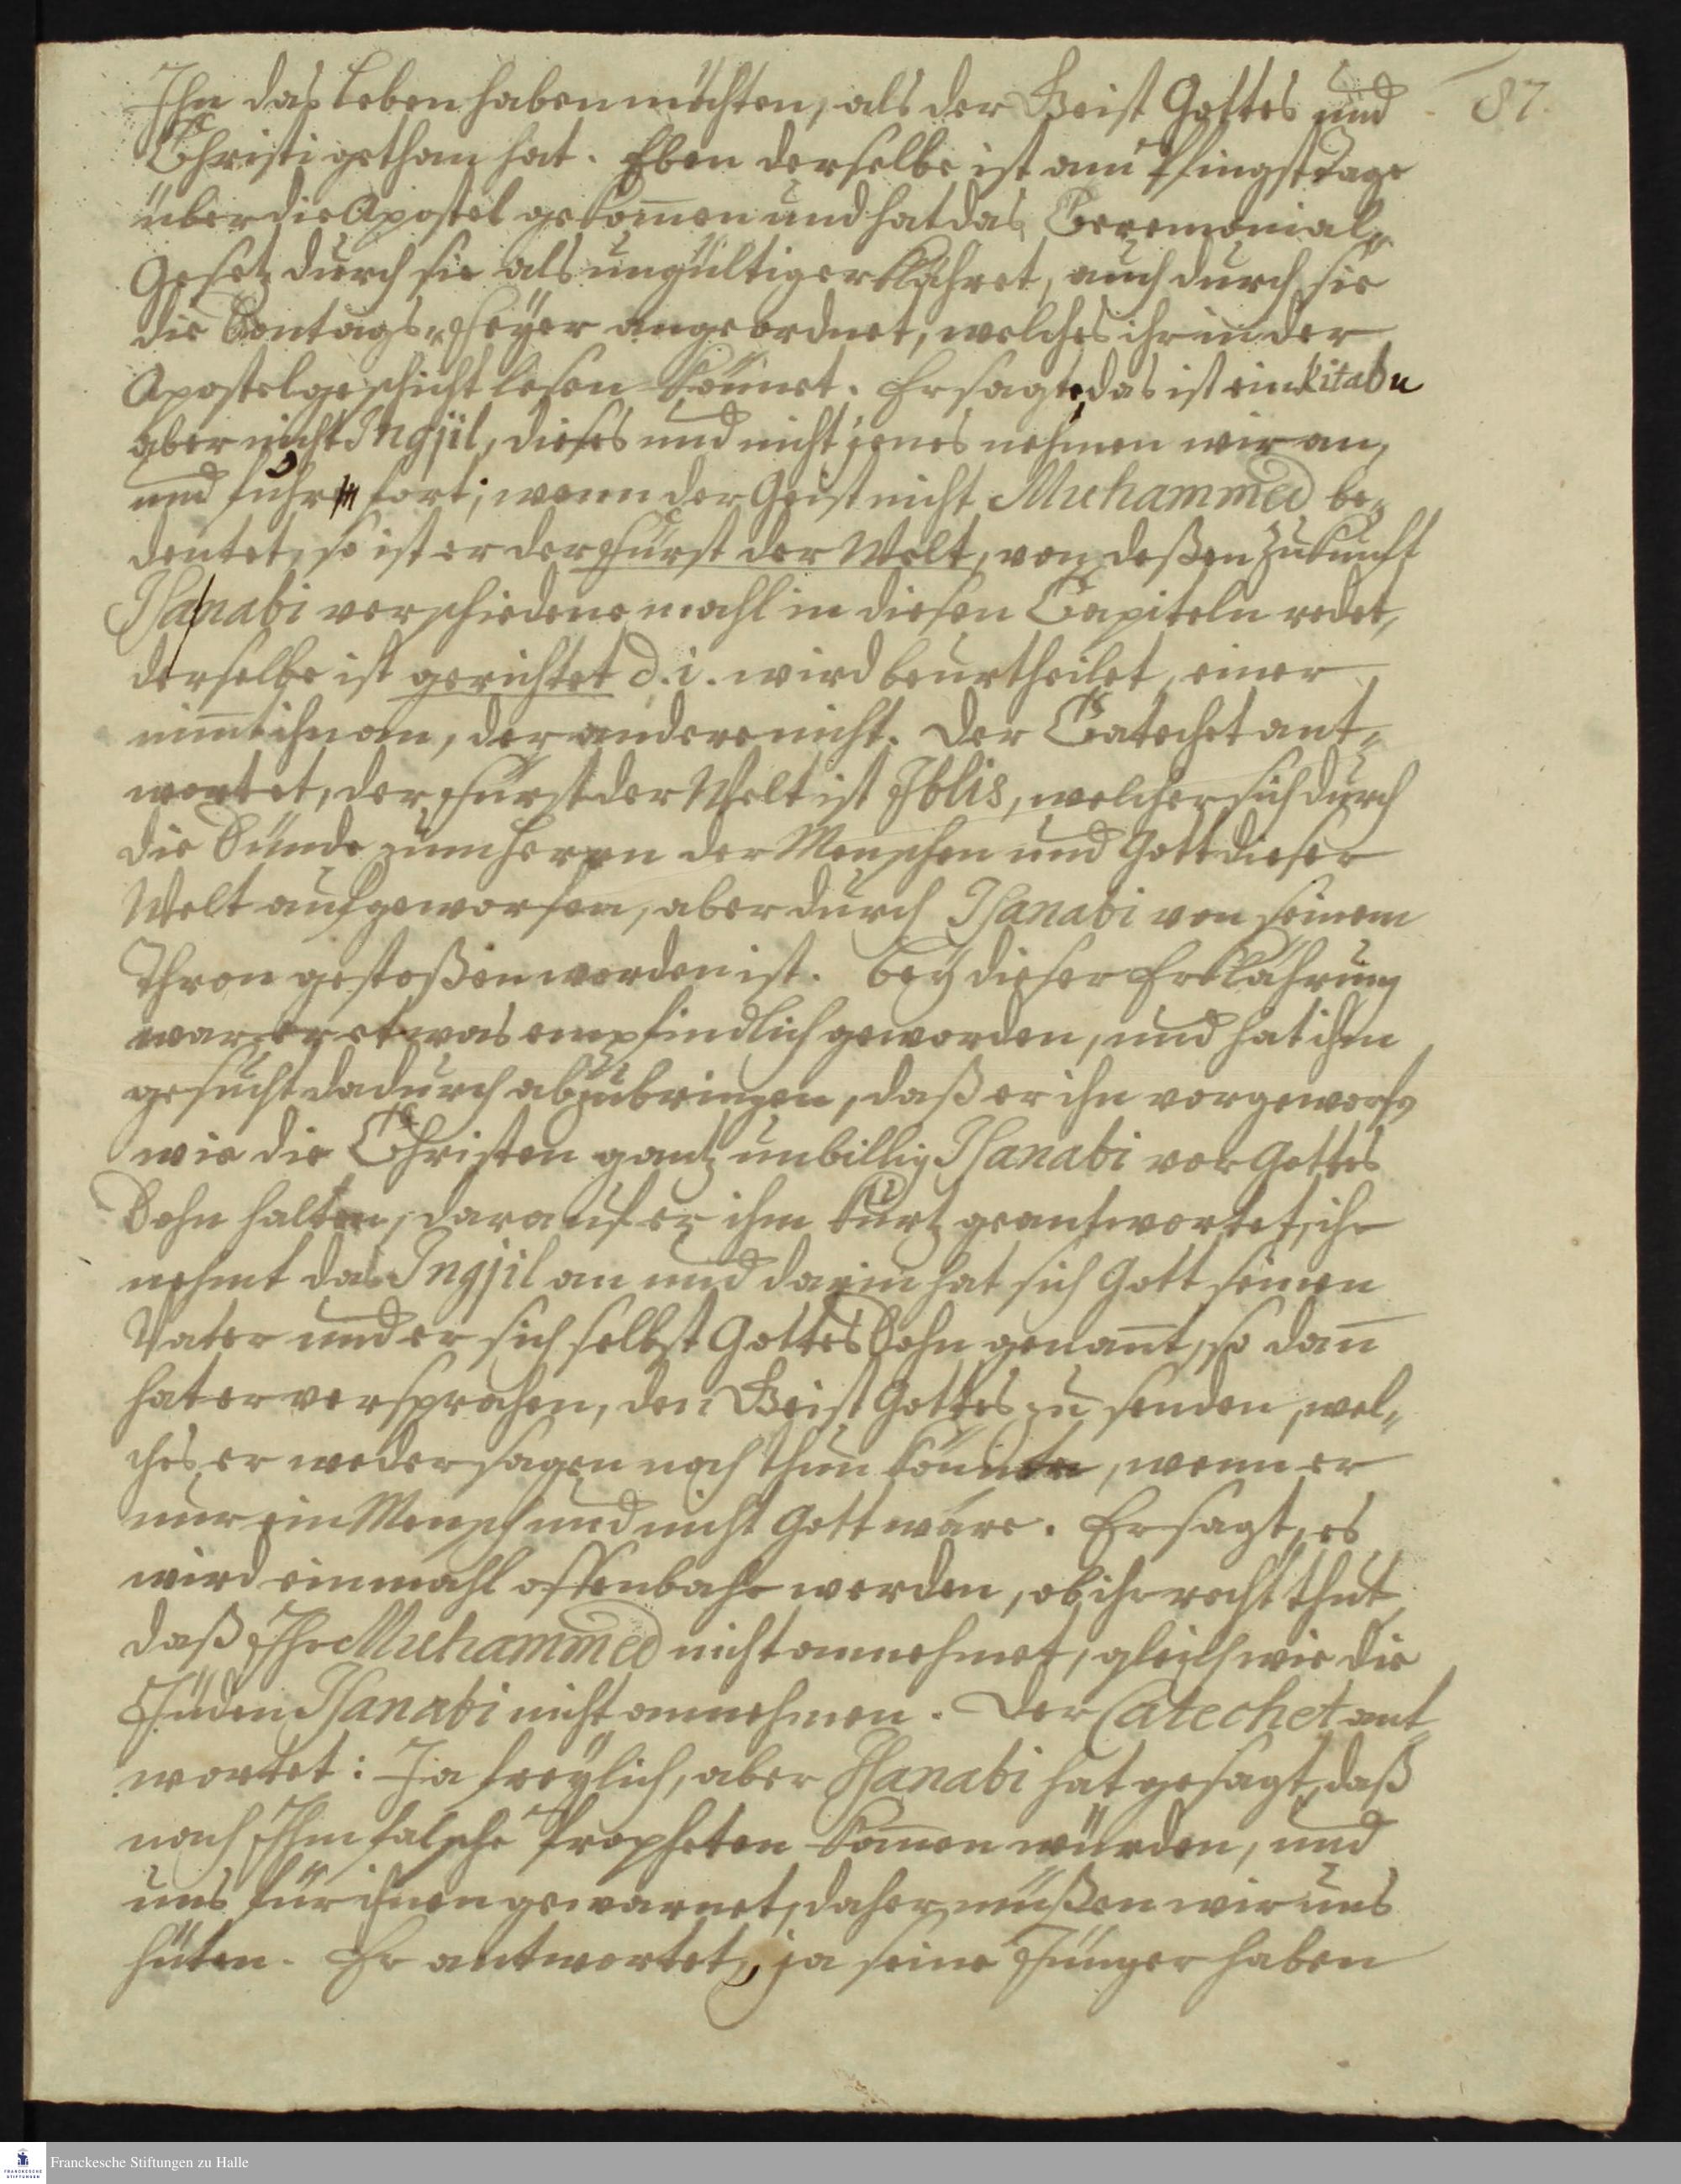 87.
Ihn das Leben haben möchten, als der Geist Gottes und
Christi gethan hat. Eben derselbe ist am PfingstTage
über die Apostel gekom̅en und hat das Ceremonial„
Gesetz durch sie als ungültig erklähret, auch durch sie
die Sontags„Feÿer angeordnet, welches ihr in der
Apostelgeschicht lesen könnet. Er sagte, das ist ein kitabu
aber nicht Ingjil, dieses und nicht jenes nehmen wir an,
und fuhr fort; wenn der Geist nicht Muhammed be„
deutet, so ist er der Fürst der Welt, von deßen Zukunft
Isanabi verschiedene mahl in diesen Capiteln redet,
derselbe ist gerichtet d. i. wird beurtheilet, einer
nim̅t ihn an, der andere nicht. Der Catechet ant„
wortet, der Fürst der Welt ist Iblis, welcher sich durch
die Sünde zum Herrn der Menschen und Gott dieser
Welt aufgeworfen, aber durch Isanabi von seinem
Thron gestoßen worden ist. Beÿ dieser Erklährung
war er etwas empfindlich geworden, und hat ihn
gesucht dadurch abzubringen, daß er ihn vorgeworfen
wie die Christen gantz unbillig Isanabi vor Gottes
Sohn halten, darauf er ihm kurtz geantwortet, ihr
nehmt das Ingjil an und darin hat sich Gott seinen
Vater und er sich selbst Gottes Sohn genan̅t, so dan̅
hat er versprochen, den Geist Gottes zu senden, wel„
ches er weder sagen noch thun könnte, wenn er
nur ein Mensch und nicht Gott wäre. Er sagt, es
wird einmahl offenbahr werden, ob ihr recht thut
daß Ihr Muhammed nicht annehmet, gleich wie die
Jüden Isanabi nicht annehmen. Der Catechet ant„
wortet: Ja freÿlich, aber Isanabi hat gesagt, daß
nach Ihm falsche Propheten kom̅en würden, und
uns für ihnen gewarnet, daher müßen wir uns
hüten. Er antwortet, ja seine Jünger haben
Franckesche Stiftungen zu Halle
FRANCKESCHE
STIFTUNGEN